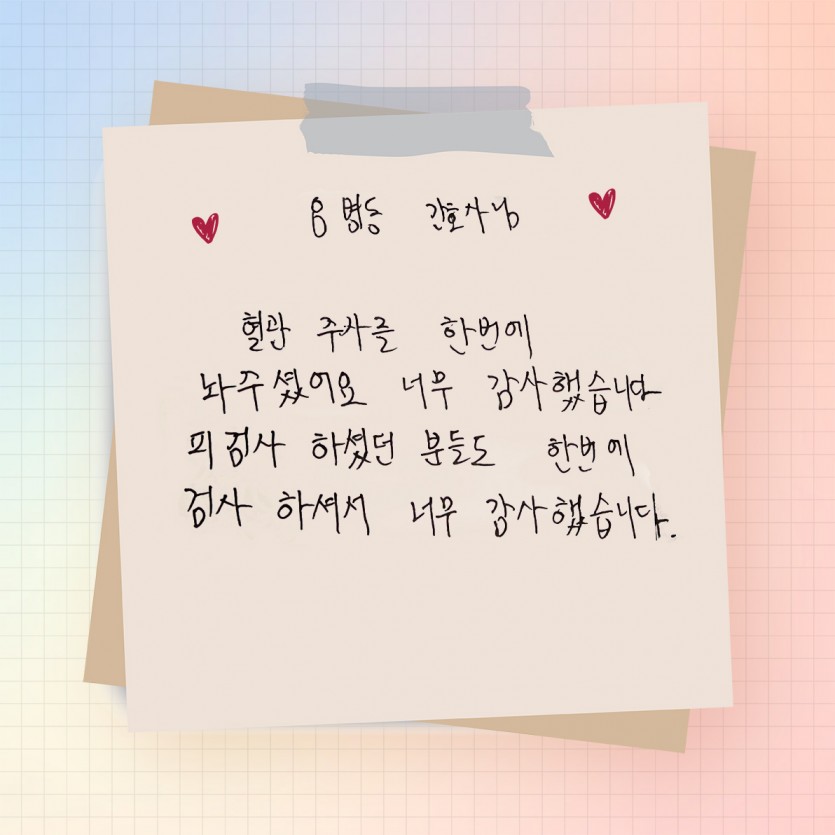 병동 간호사님
혈관 주사를 한번에
놔주셨어요 너무 감사했습니다
피검사 하셨던 분들도 한번에
검사 하셔서 너무 감사했습니다.